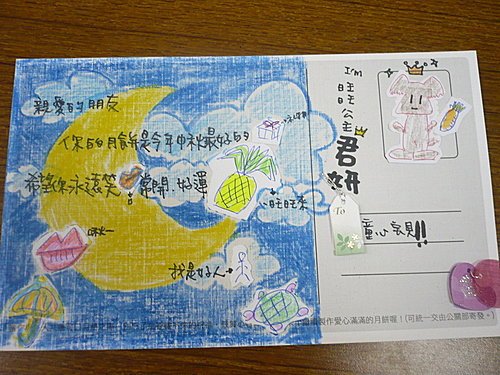 親愛的朋友
你的月餅是今年中秋最好的
希望你永遠笑
常開 好運
旺旺來
啾~
我是好人
I'm
旺旺公主
君妍
To
童心家見!!
製作愛心滿滿的月餅喔！(可統一交由公關部寄發。)